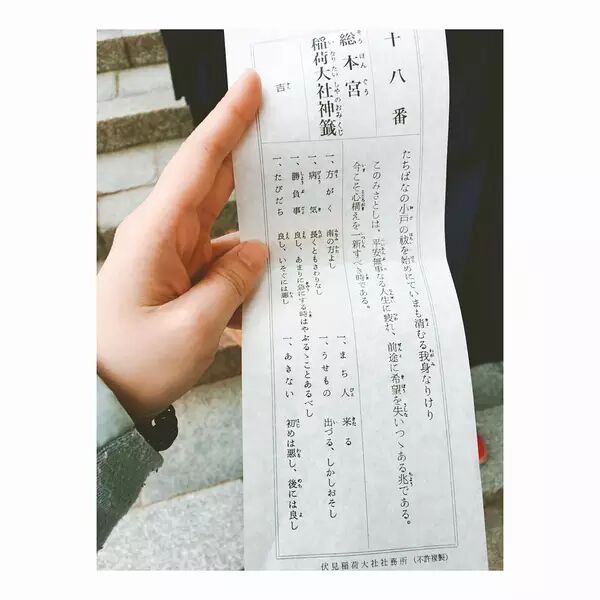 十八番
総本宮
稲荷大社神籤
吉
たちばなの小戸の祓を始めにていまも清むる我身なりけり
このみさとしは、平安無事なる人生に疲れ、前途に希望を失いつゝある兆である。
今こそ心構えを一新すべき時である。
一、方がく 南の方よし
一、病気 長くともさわりなし
一、勝負事 良し、あまりに急にする時はやぶるゝことあるべし
一、たびだち 良し、いそぐには悪し
一、まち人 来る
一、うせもの 出づる、しかしおそし
一、あきない 初めは悪し、後には良し
伏見稲荷大社社務所 (不許複製)